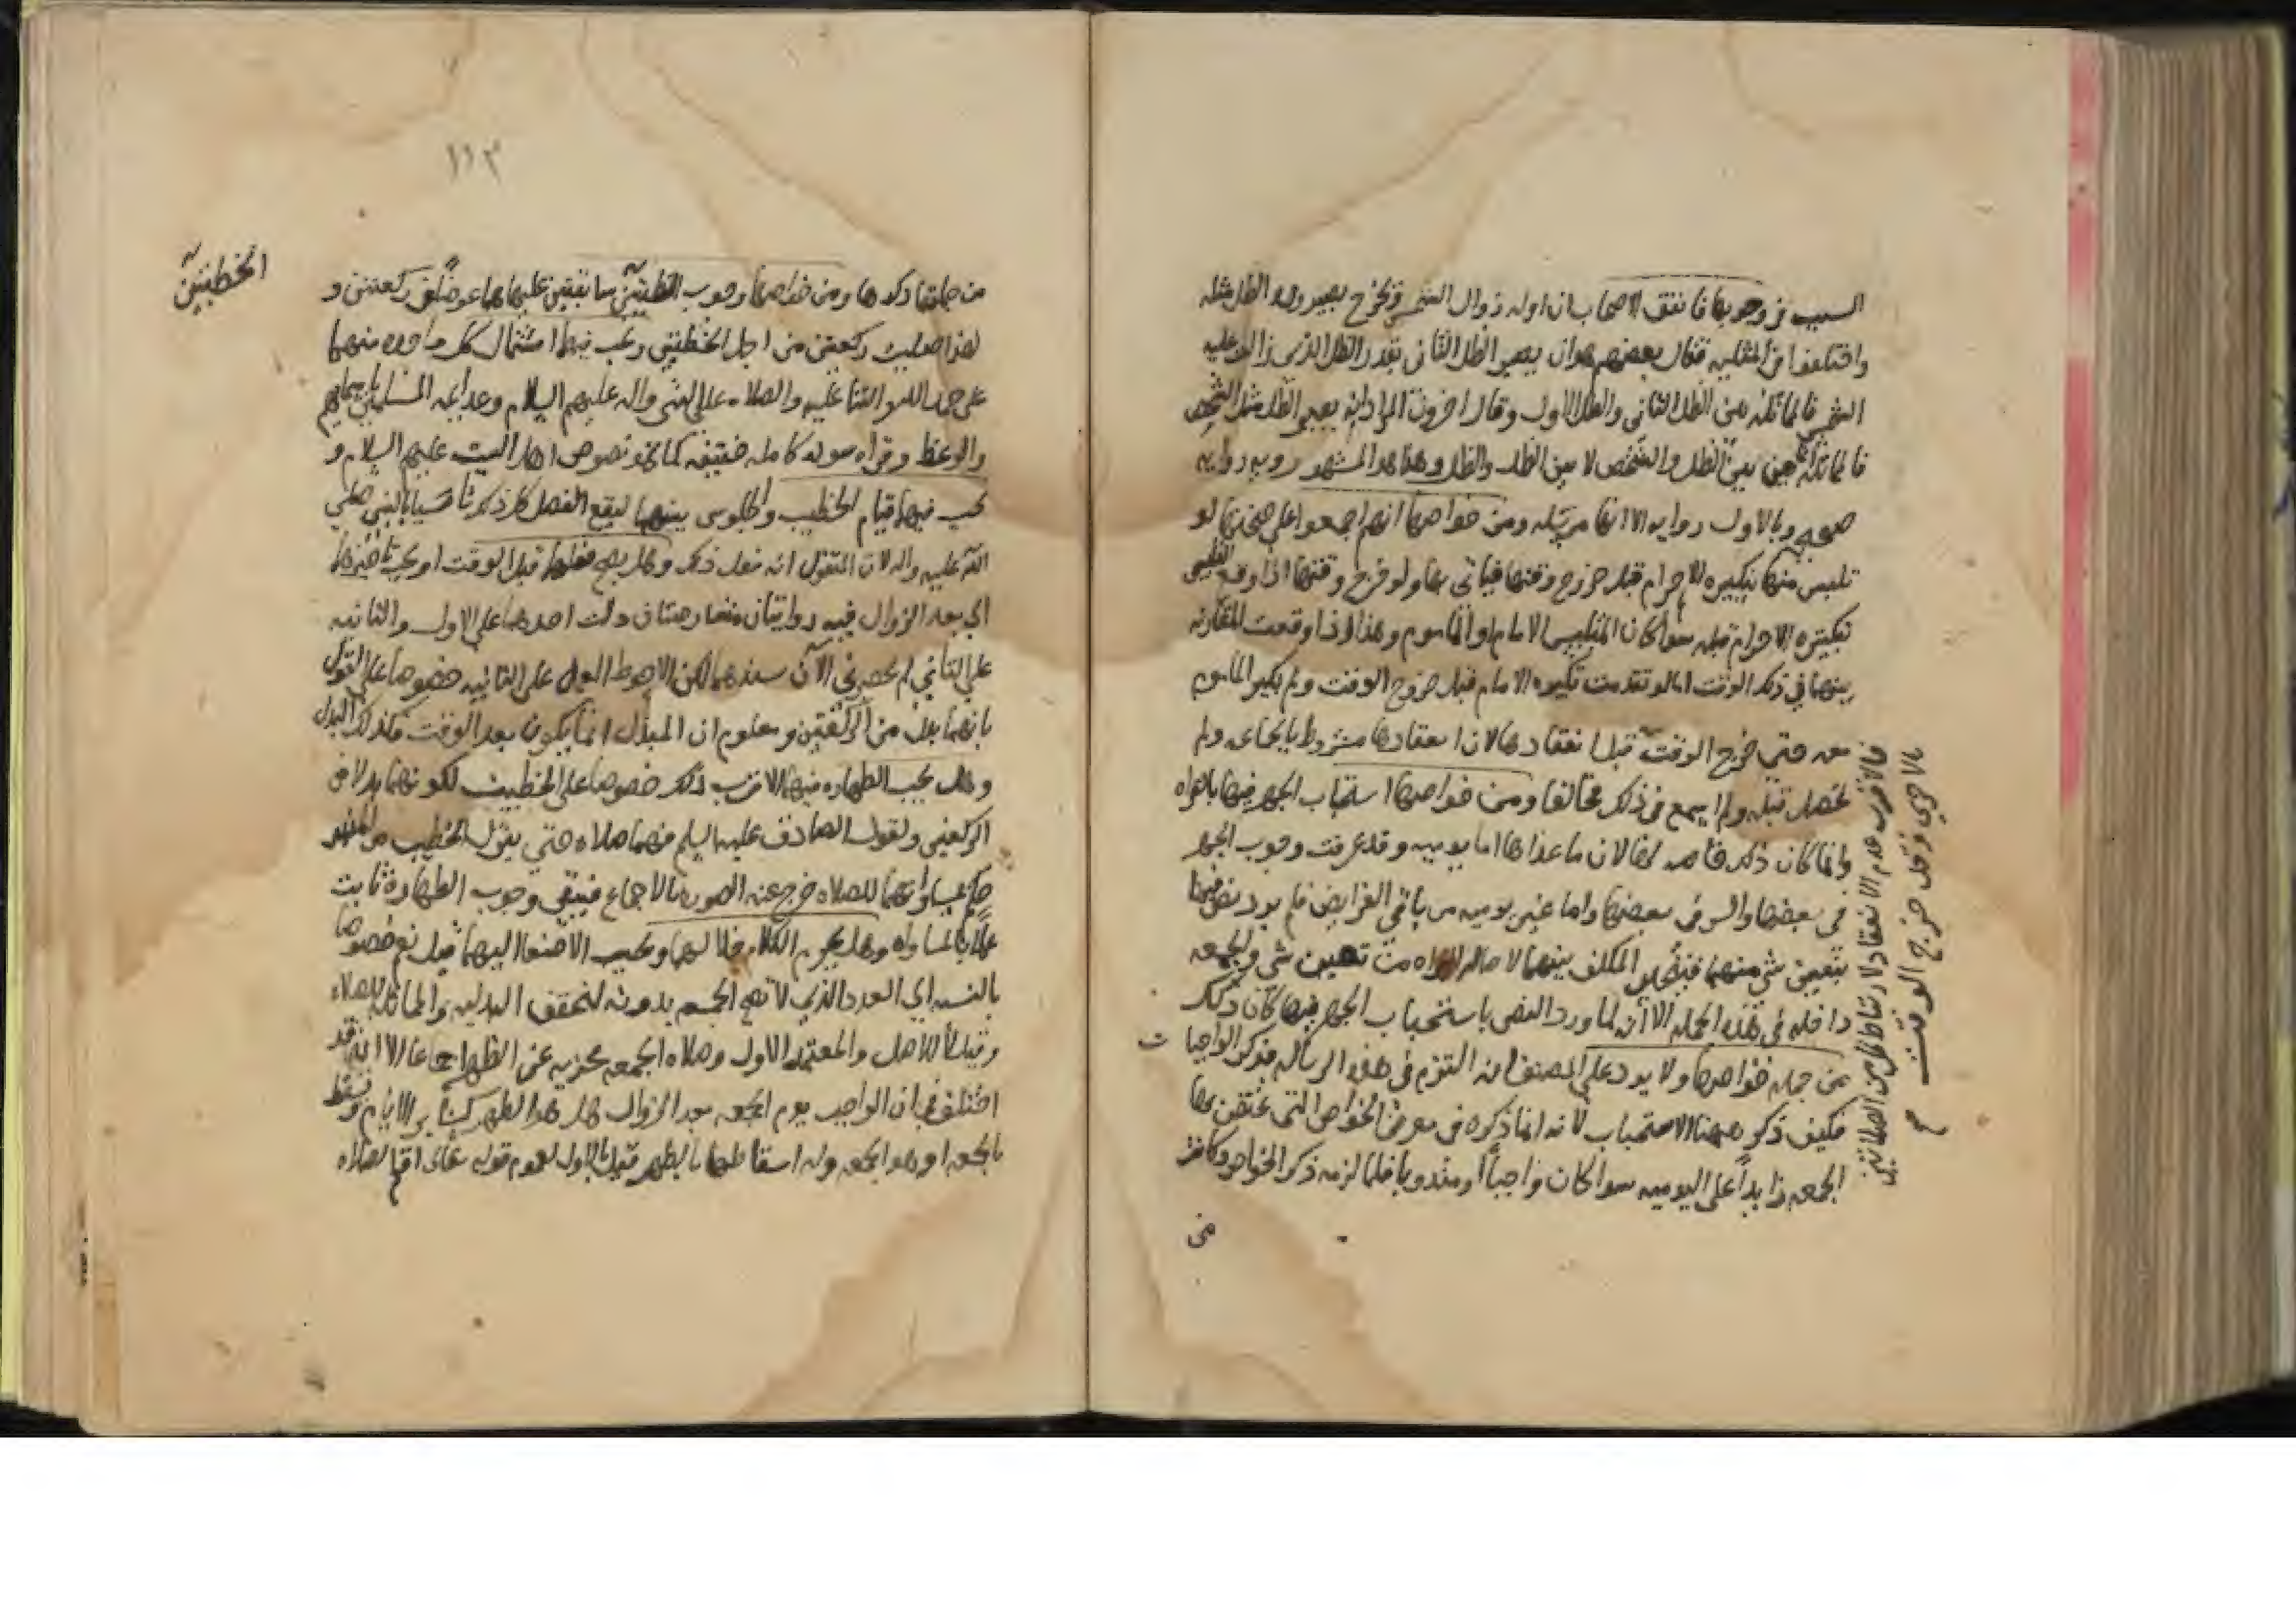 السبب في وجوبها فاتفق الاصحاب ان اوله زوال الشمس ويخرج بصيرورة الظل مثله
واختلفوا في المثلية فقال بعضهم هو ان يصير الظل الثاني بقدر الظل الذي زالت عليه
الشمس فالمماثلة بين الظل الثاني والظل الاول وقال اخرون المراد ان يصير الظل مثل الشخص
فالمماثلة حين بين الظل والشخص لا بين الظل والظل وهذا هو المشهور وبه رواية
صحيحه وبالاول رواية الا انها مرسله ومن خواصها انهم اجمعوا على صحتها لو
تلبس منها بتكبيرة الاحرام قبل خروج وقتها فياتي بها ولو خرج وقتها اذا وقع التلبس
بتكبيرة الاحرام قبله سوا كان المتلبس الامام او الماموم وهذا اذا وقعت المقارنه
بينهما في ذلك الوقت اما لو تقدمت تكبيرة الامام قبل خروج الوقت ولم يكبر الماموم
معه حتى خرج الوقت قبل انعقادها لان انعقادها مشروط بالجماعه ولم
تحصل قبله ولم يسمع في ذلك مخالفا ومن خواصها استحباب الجهر فيها بالقراه
وانما كان ذلك خاصه لها لان ما عداها اما يوميه وقد عرفت وجوب الجهر
في بعضها والسر في بعضها واما غير يوميه من باقي الفرايض فلم يرد نص فيها
بتعيين شي منهما فيتخير المكلف بينهما لاصاله البراه من تعيين شي والجمعه
داخله في هذه الجمله الا انه لما ورد النص باستحباب الجهر فيها كان ذلك
من جمله خواصها ولا يرد على المصنف انه التزم في هذه الرساله بذكر الواجبات
فكيف ذكر ههنا الاستحباب لانه انما ذكره في معرض الخواص التي تختص بها
الجمعه زايدا على اليوميه سوا كان واجبا او مندوبا فلما لزمه ذكر الخواص وكان
من
فالاقرب عدم الانعقاد لارتباط كل من الصلاتين
بالاخرى وقبل خروج الوقت
١١٣
من جملتها ذكرها ومن خواصها وجوب الخطبتين سابقتين عليها هما عوض عن ركعتين و
لهذا صليت ركعتين من اجل الخطبتين ويجب فيهما اشتمال كل واحده منهما
على حمد الله والثنا عليه والصلاه على النبي واله عليهم السلام
والوعظ وقراه سوره كامله خفيفه كما في نصوص اهل البيت عليهم السلام و
يجب فيهما قيام الخطيب والجلوس بينهما ليقع الفصل كل ذلك تاسيا بالنبي صلى
الله عليه واله لان المنقول انه فعل ذلك وهل يصح فعلهما قبل الوقت او يجب تاخيرهما
الى بعد الزوال فيه روايتان متعارضتان دلت احدهما على الاول والثانيه
على الثاني لم يحضرني الان سندهما لكن الاحوط العمل على الثانيه خصوصا على القول
بانهما بدل من الركعتين ومعلوم ان المبدل انما يكون بعد الوقت فكذلك البدل
وهل يجب الطهاره فيهما الاقرب ذلك خصوصا على الخطيب لكونهما بدلا من
الركعتين ولقول الصادق عليه السلم فهما صلاه حتى ينزل الخطيب من المنبر
حكم بمساواتهما للصلاه خرج عنه الصوره بالاجماع فيبقى وجوب الطهارة ثابت
عملا بالمساواه وهل يحرم الكلام خلالهما ويجب الاصغا اليهما قيل نعم خصوصا
بالنسبه الى العدد الذي لا تصح الجمعه بدونه لتحقق البدليه والمماثله للصلاه
وقيل لا للاصل والمعتمد الاول وصلاه الجمعه مجزيه عن الظهر اجماعا الا انه قد
اختلف في ان الواجب يوم الجمعه بعد الزوال هل هو الظهر كساير الايام وتسقط
بالجمعه او هو الجمعه وله اسقاطها بالظهر قيل بالاول لعموم قوله تعالى اقم الصلاه
الخطبتين